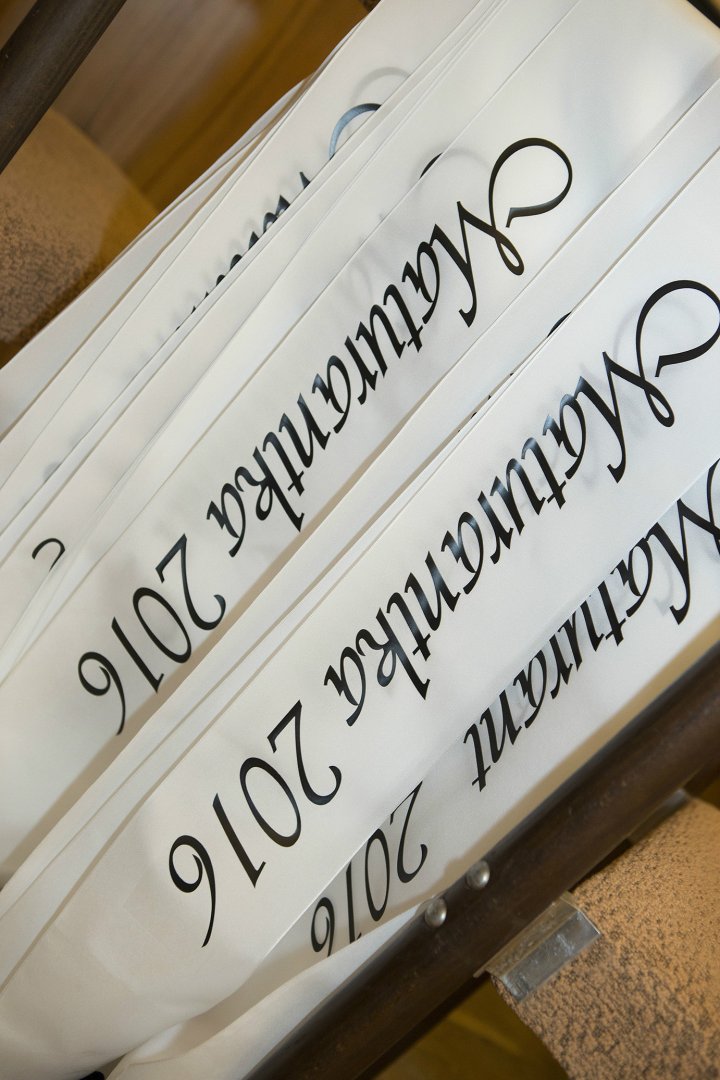 Maturantka 2016
Maturantka 2016
Maturant 2016